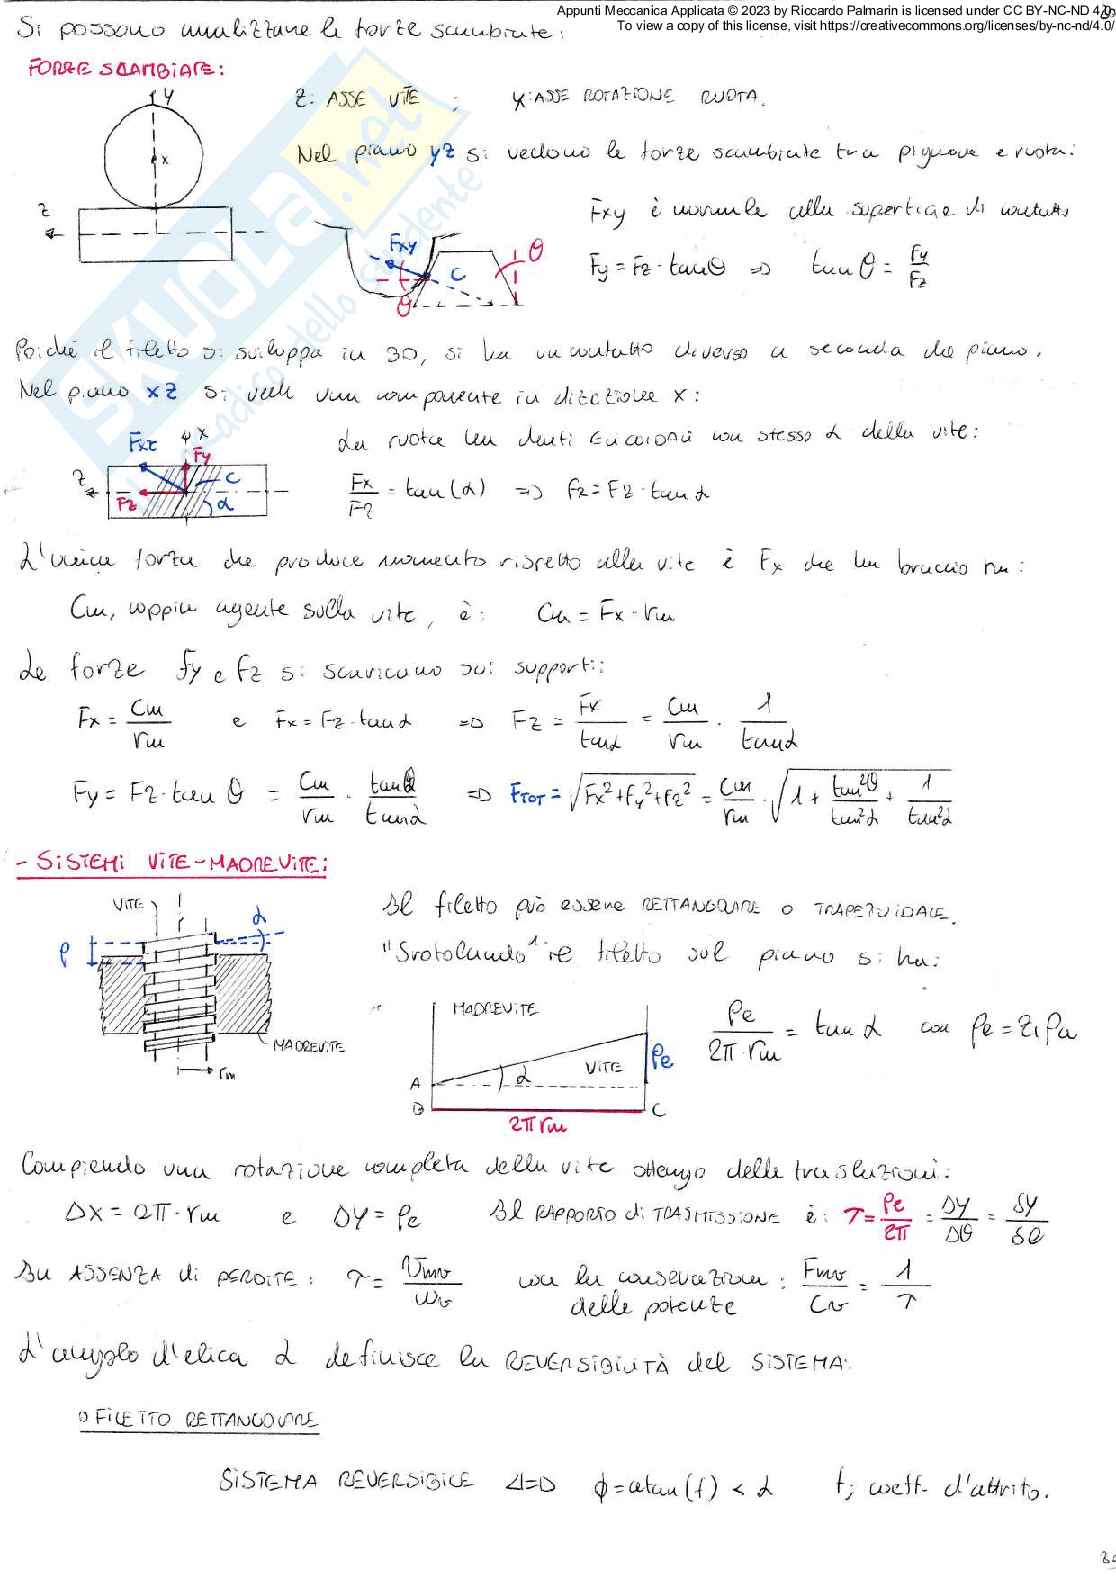 Appunti Meccanica Applicata © 2023 by Riccardo Palmarin is licensed under CC BY-NC-ND 4.0
To view a copy of this license, visit https://creativecommons.org/licenses/by-nc-nd/4.0/
Si possono analizzare le forze scambiate:
FORZE SCAMBIATE:
Z: ASSE VITE ; X: ASSE ROTAZIONE RUOTA.
Nel piano yz si vedono le forze scambiate tra pignone e ruota:
Fxy è normale alla superficie di contatto
Fy = Fz · tanθ => tanθ = Fy/Fz
y
x
z
Fxy
C
θ
θ
Poiché il filetto si sviluppa in 3D, si ha un contatto diverso a seconda del piano.
Nel piano xz si vede una componente in direzione x:
La ruota ha denti con stesso α della vite:
Fx/Fz = tan(α) => Fz = Fz · tanα
Fxz
x
Fy
z
C
Fz
α
L'unica forza che produce momento rispetto alla vite è Fx che ha braccio rm:
Cm, coppia agente sulla vite, è: Cm = Fx · rm
Le forze Fy e Fz si scaricano sui supporti:
Fx = Cm/rm e Fx = Fz · tanα => Fz = Fx/tanα = Cm/rm · 1/tanα
Fy = Fz · tanθ = Cm/rm · tanθ/tanα => FTOT = √(Fx²+Fy²+Fz²) = Cm/rm · √(1 + tan²θ/tan²α + 1/tan²α)
- SISTEMI VITE-MADREVITE:
VITE
α
p
MADREVITE
rm
Il filetto può essere RETTANGOLARE o TRAPEZOIDALE.
"Srotolando" il filetto sul piano si ha:
MADREVITE
VITE
α
Pe
A
B
C
2π rm
Pe/2π·rm = tanα con Pe = z1 Pa
Compiendo una rotazione completa della vite ottengo delle traslazioni:
ΔX = 2π·rm e ΔY = Pe Il RAPPORTO di TRASMISSIONE è: τ = Pe/2π = ΔY/Δθ = δY/δθ
In ASSENZA di PERDITE: τ = Vmv/ωv con la conservazione delle potenze : Fmv/Cv = 1/τ
L'angolo d'elica α definisce la REVERSIBILITÀ del SISTEMA:
o FILETTO RETTANGOLARE
SISTEMA REVERSIBILE <=> ϕ = atan(f) < α f; coeff. d'attrito.